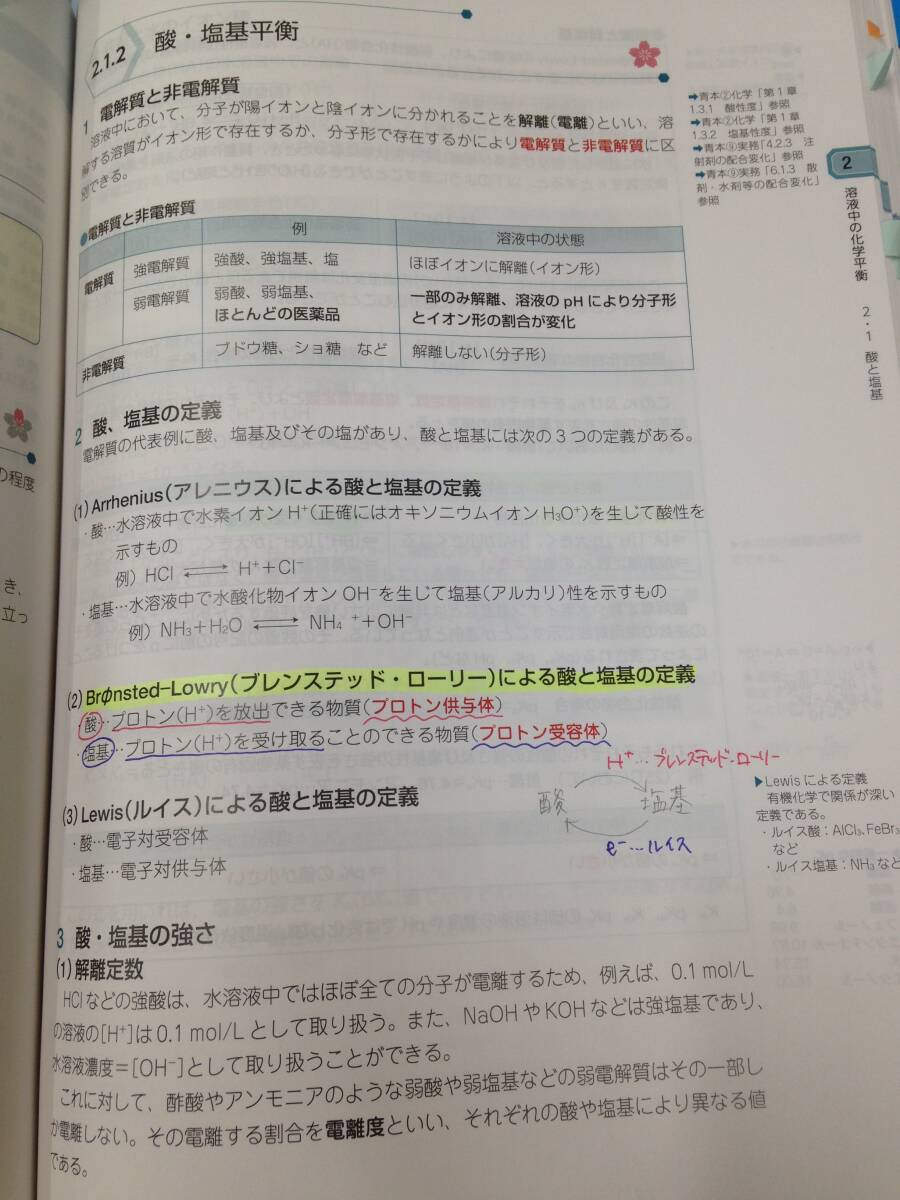 2.1.2 酸・塩基平衡
1 電解質と非電解質
溶液中において、分子が陽イオンと陰イオンに分かれることを解離(電離)といい、溶
解する溶質がイオン形で存在するか、分子形で存在するかにより電解質と非電解質に区
別できる。
●電解質と非電解質
例 溶液中の状態
電解質 強電解質 強酸、強塩基、塩 ほぼイオンに解離(イオン形)
弱電解質 弱酸、弱塩基、
ほとんどの医薬品
一部のみ解離、溶液の pH により分子形
とイオン形の割合が変化
非電解質 ブドウ糖、ショ糖 など 解離しない(分子形)
2 酸、塩基の定義
電解質の代表例に酸、塩基及びその塩があり、酸と塩基には次の3つの定義がある。
(1) Arrhenius(アレニウス)による酸と塩基の定義
・酸…水溶液中で水素イオン H⁺(正確にはオキソニウムイオン H₃O⁺)を生じて酸性を
示すもの
例) HCl ⇄ H⁺+Cl⁻
・塩基…水溶液中で水酸化物イオン OH⁻を生じて塩基(アルカリ)性を示すもの
例) NH₃+H₂O ⇄ NH₄⁺+OH⁻
(2) Brφnsted-Lowry(ブレンステッド・ローリー)による酸と塩基の定義
・酸…プロトン(H⁺)を放出できる物質(プロトン供与体)
・塩基…プロトン(H⁺)を受け取ることのできる物質(プロトン受容体)
H⁺… ブレンステッド・ローリー
酸 塩基
e⁻…ルイス
(3) Lewis(ルイス)による酸と塩基の定義
・酸…電子対受容体
・塩基…電子対供与体
3 酸・塩基の強さ
(1) 解離定数
HCl などの強酸は、水溶液中ではほぼ全ての分子が電離するため、例えば、0.1 mol/L
の溶液の[H⁺]は 0.1 mol/L として取り扱う。また、NaOH や KOH などは強塩基であり、
水溶液濃度=[OH⁻]として取り扱うことができる。
これに対して、酢酸やアンモニアのような弱酸や弱塩基などの弱電解質はその一部し
か電離しない。その電離する割合を電離度といい、それぞれの酸や塩基により異なる値
である。
➡青本②化学「第1章
1.3.1 酸性度」参照
➡青本②化学「第1章
1.3.2 塩基性度」参照
➡青本⑨実務「4.2.3 注
射剤の配合変化」参照
➡青本⑨実務「6.1.3 散
剤・水剤等の配合変化」
参照
2
溶液中の化学平衡
2・1 酸と塩基
▶Lewis による定義
有機化学で関係が深い
定義である。
・ルイス酸:AlCl₃、FeBr₃
など
・ルイス塩基:NH₃ など
の程度
き、
立っ